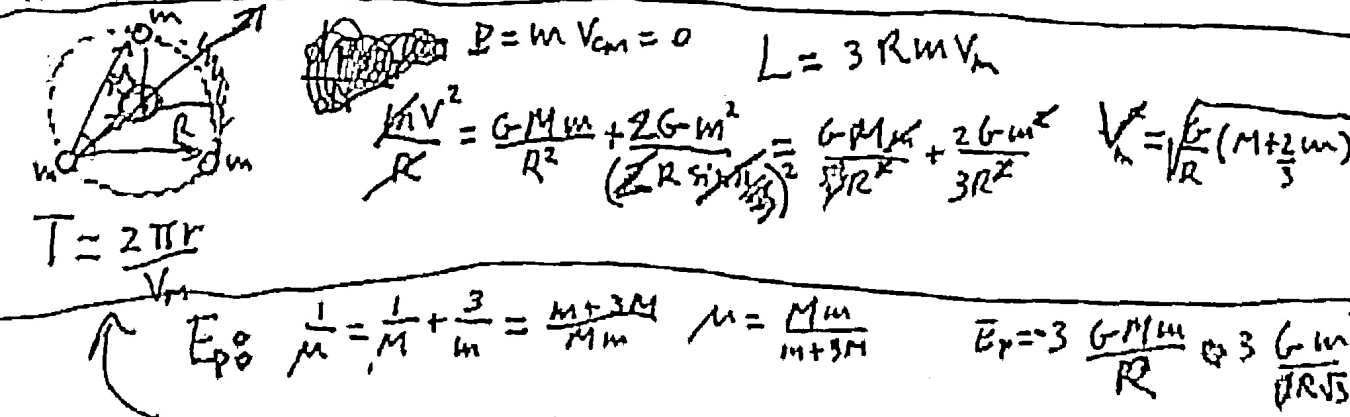 m
P = m V_cm = 0    L = 3 R m V_m
mV²/R = GMm/R² + 2Gm²/(2R sin π/3)² = GMm/R² + 2Gm²/3R²    V_m = √(G/R (M + 2/3 m))
R
m m
T = 2πr/V_m
E_p: 1/μ = 1/M + 3/m = (m + 3M)/Mm    μ = Mm/(m + 3M)    E_p = -3 GMm/R    3 Gm/(R√3)